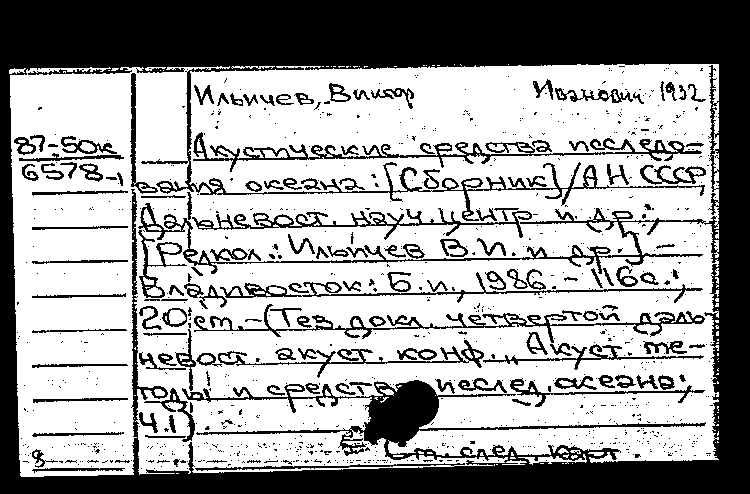 Ильичев, Виктор Иванович 1932
87-50к
6578-1
Акустические средства исследо-
вания океана: [Сборник] / АН СССР,
Дальневост. науч. центр и др.;
[Редкол.: Ильичев В.И. и др.] -
Владивосток: Б.и., 1986. - 116с.;
20 см. - (Тез. докл. четвертой даль-
невост. акуст. конф. „Акуст. ме-
тоды и средства исслед. океана;
Ч.1).
См. след. карт.
8